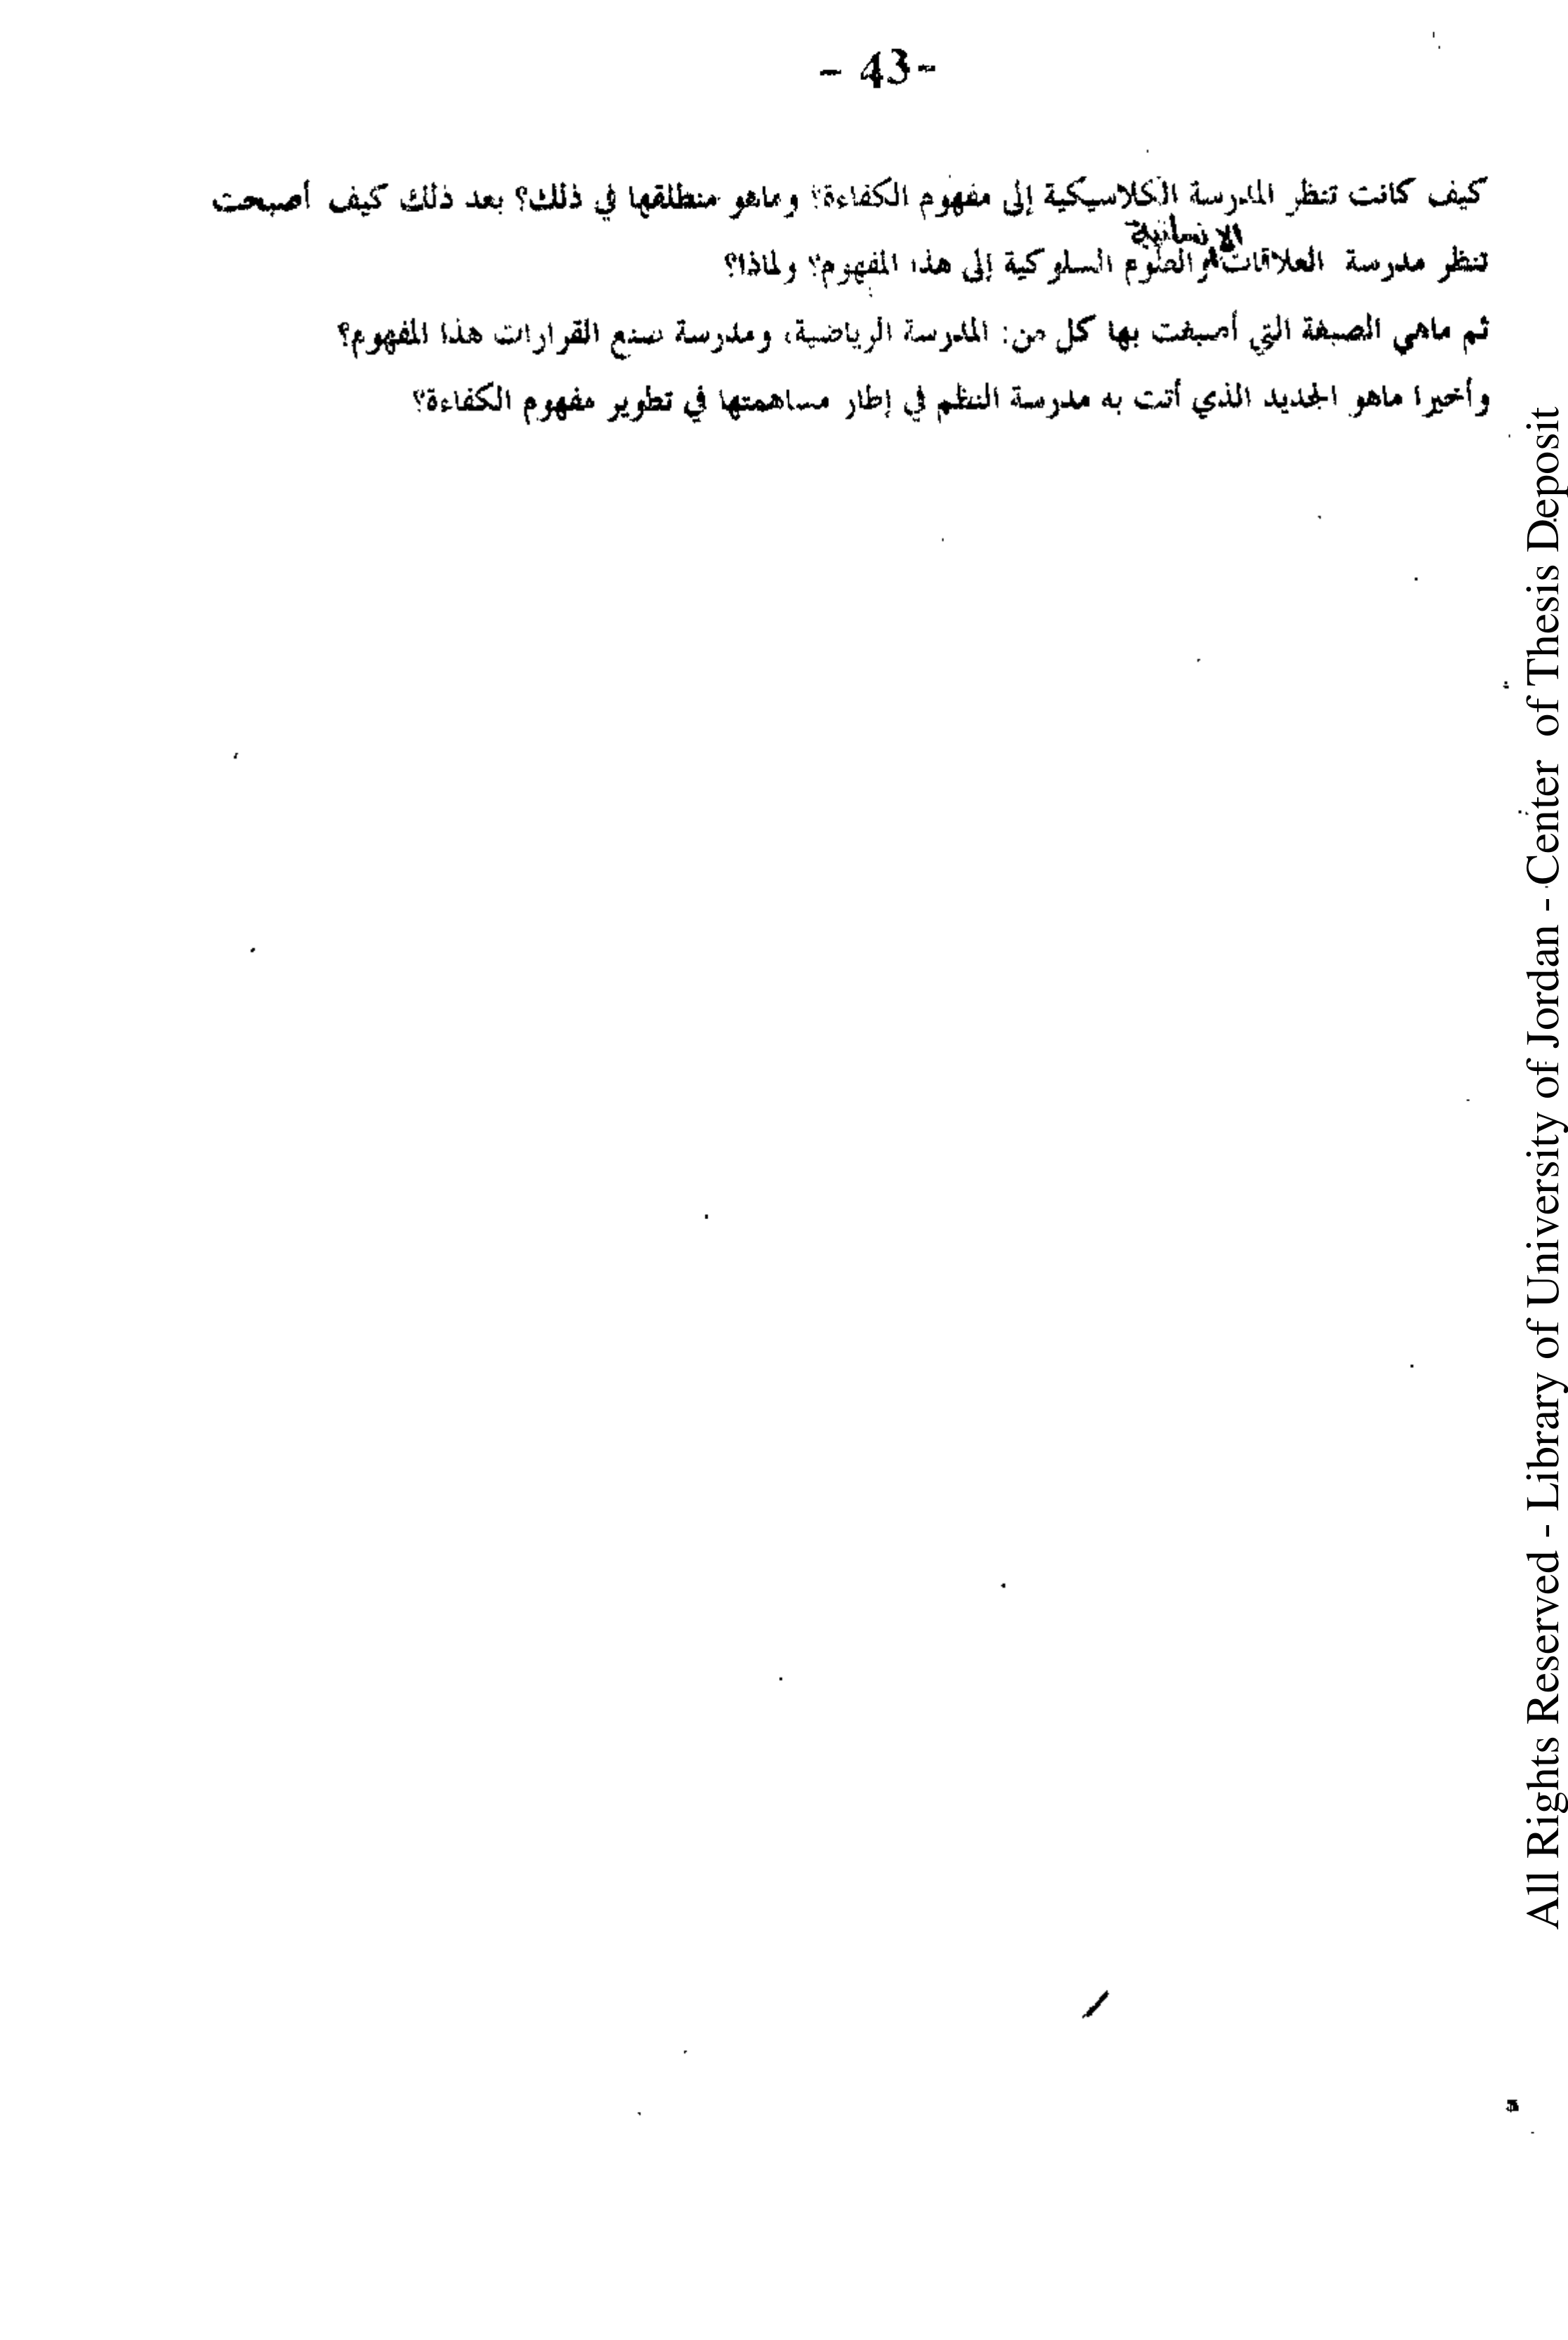 - 43 -
كيف كانت تنظر المدرسة الكلاسيكية إلى مفهوم الكفاءة؟ وماهو منطلقها في ذلك؟ بعد ذلك كيف أصبحت
تنظر مدرسة العلاقات الإنسانية والعلوم السلوكية إلى هذا المفهوم؟ ولماذا؟
ثم ماهي الصبغة التي أصبغت بها كل من: المدرسة الرياضية، ومدرسة صنع القرارات هذا المفهوم؟
وأخيرا ماهو الجديد الذي أتت به مدرسة النظم في إطار مساهمتها في تطوير مفهوم الكفاءة؟
All Rights Reserved - Library of University of Jordan - Center of Thesis Deposit